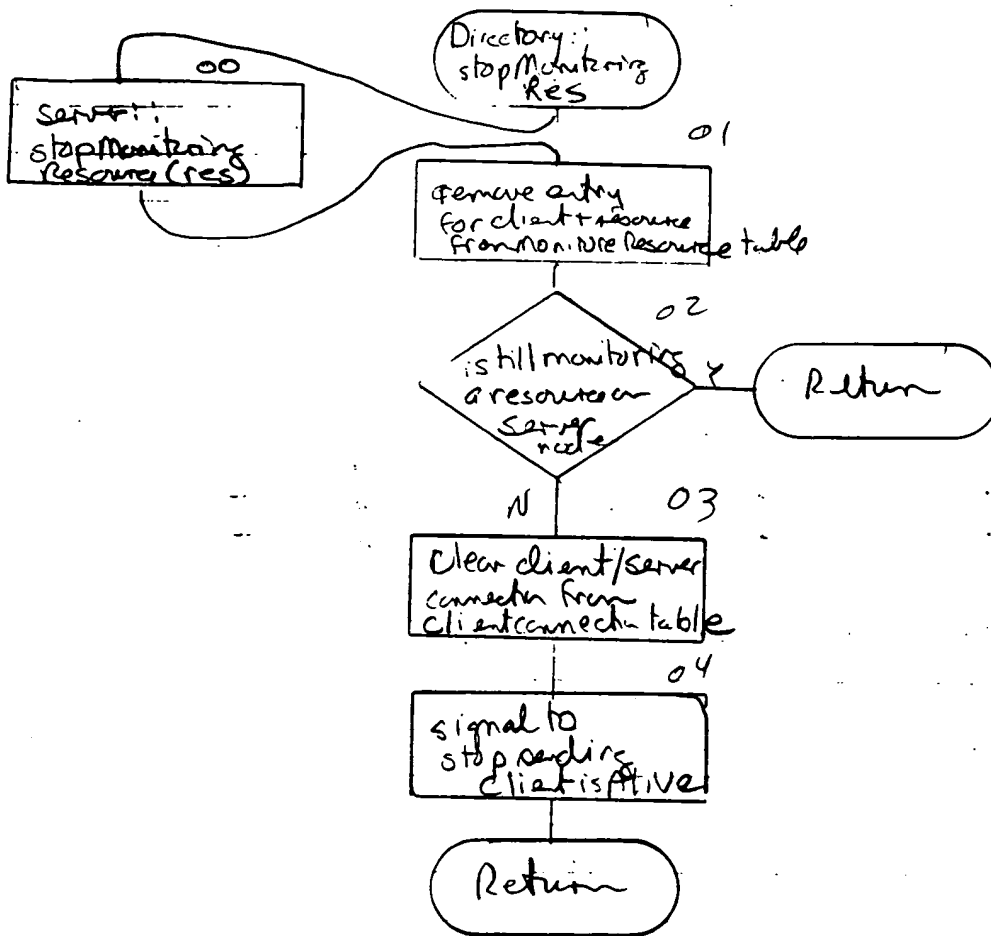 Directory::
stopMonitoring
Res
00
server::
stopMonitoring
Resource(res)
01
remove entry
for client + resource
from Monitore Resource table
02
is till monitoring
a resource on
server
node
Y
Return
N
03
Clear client/server
connection from
Clientconnection table
04
signal to
stop sending
Client is Ative
Return